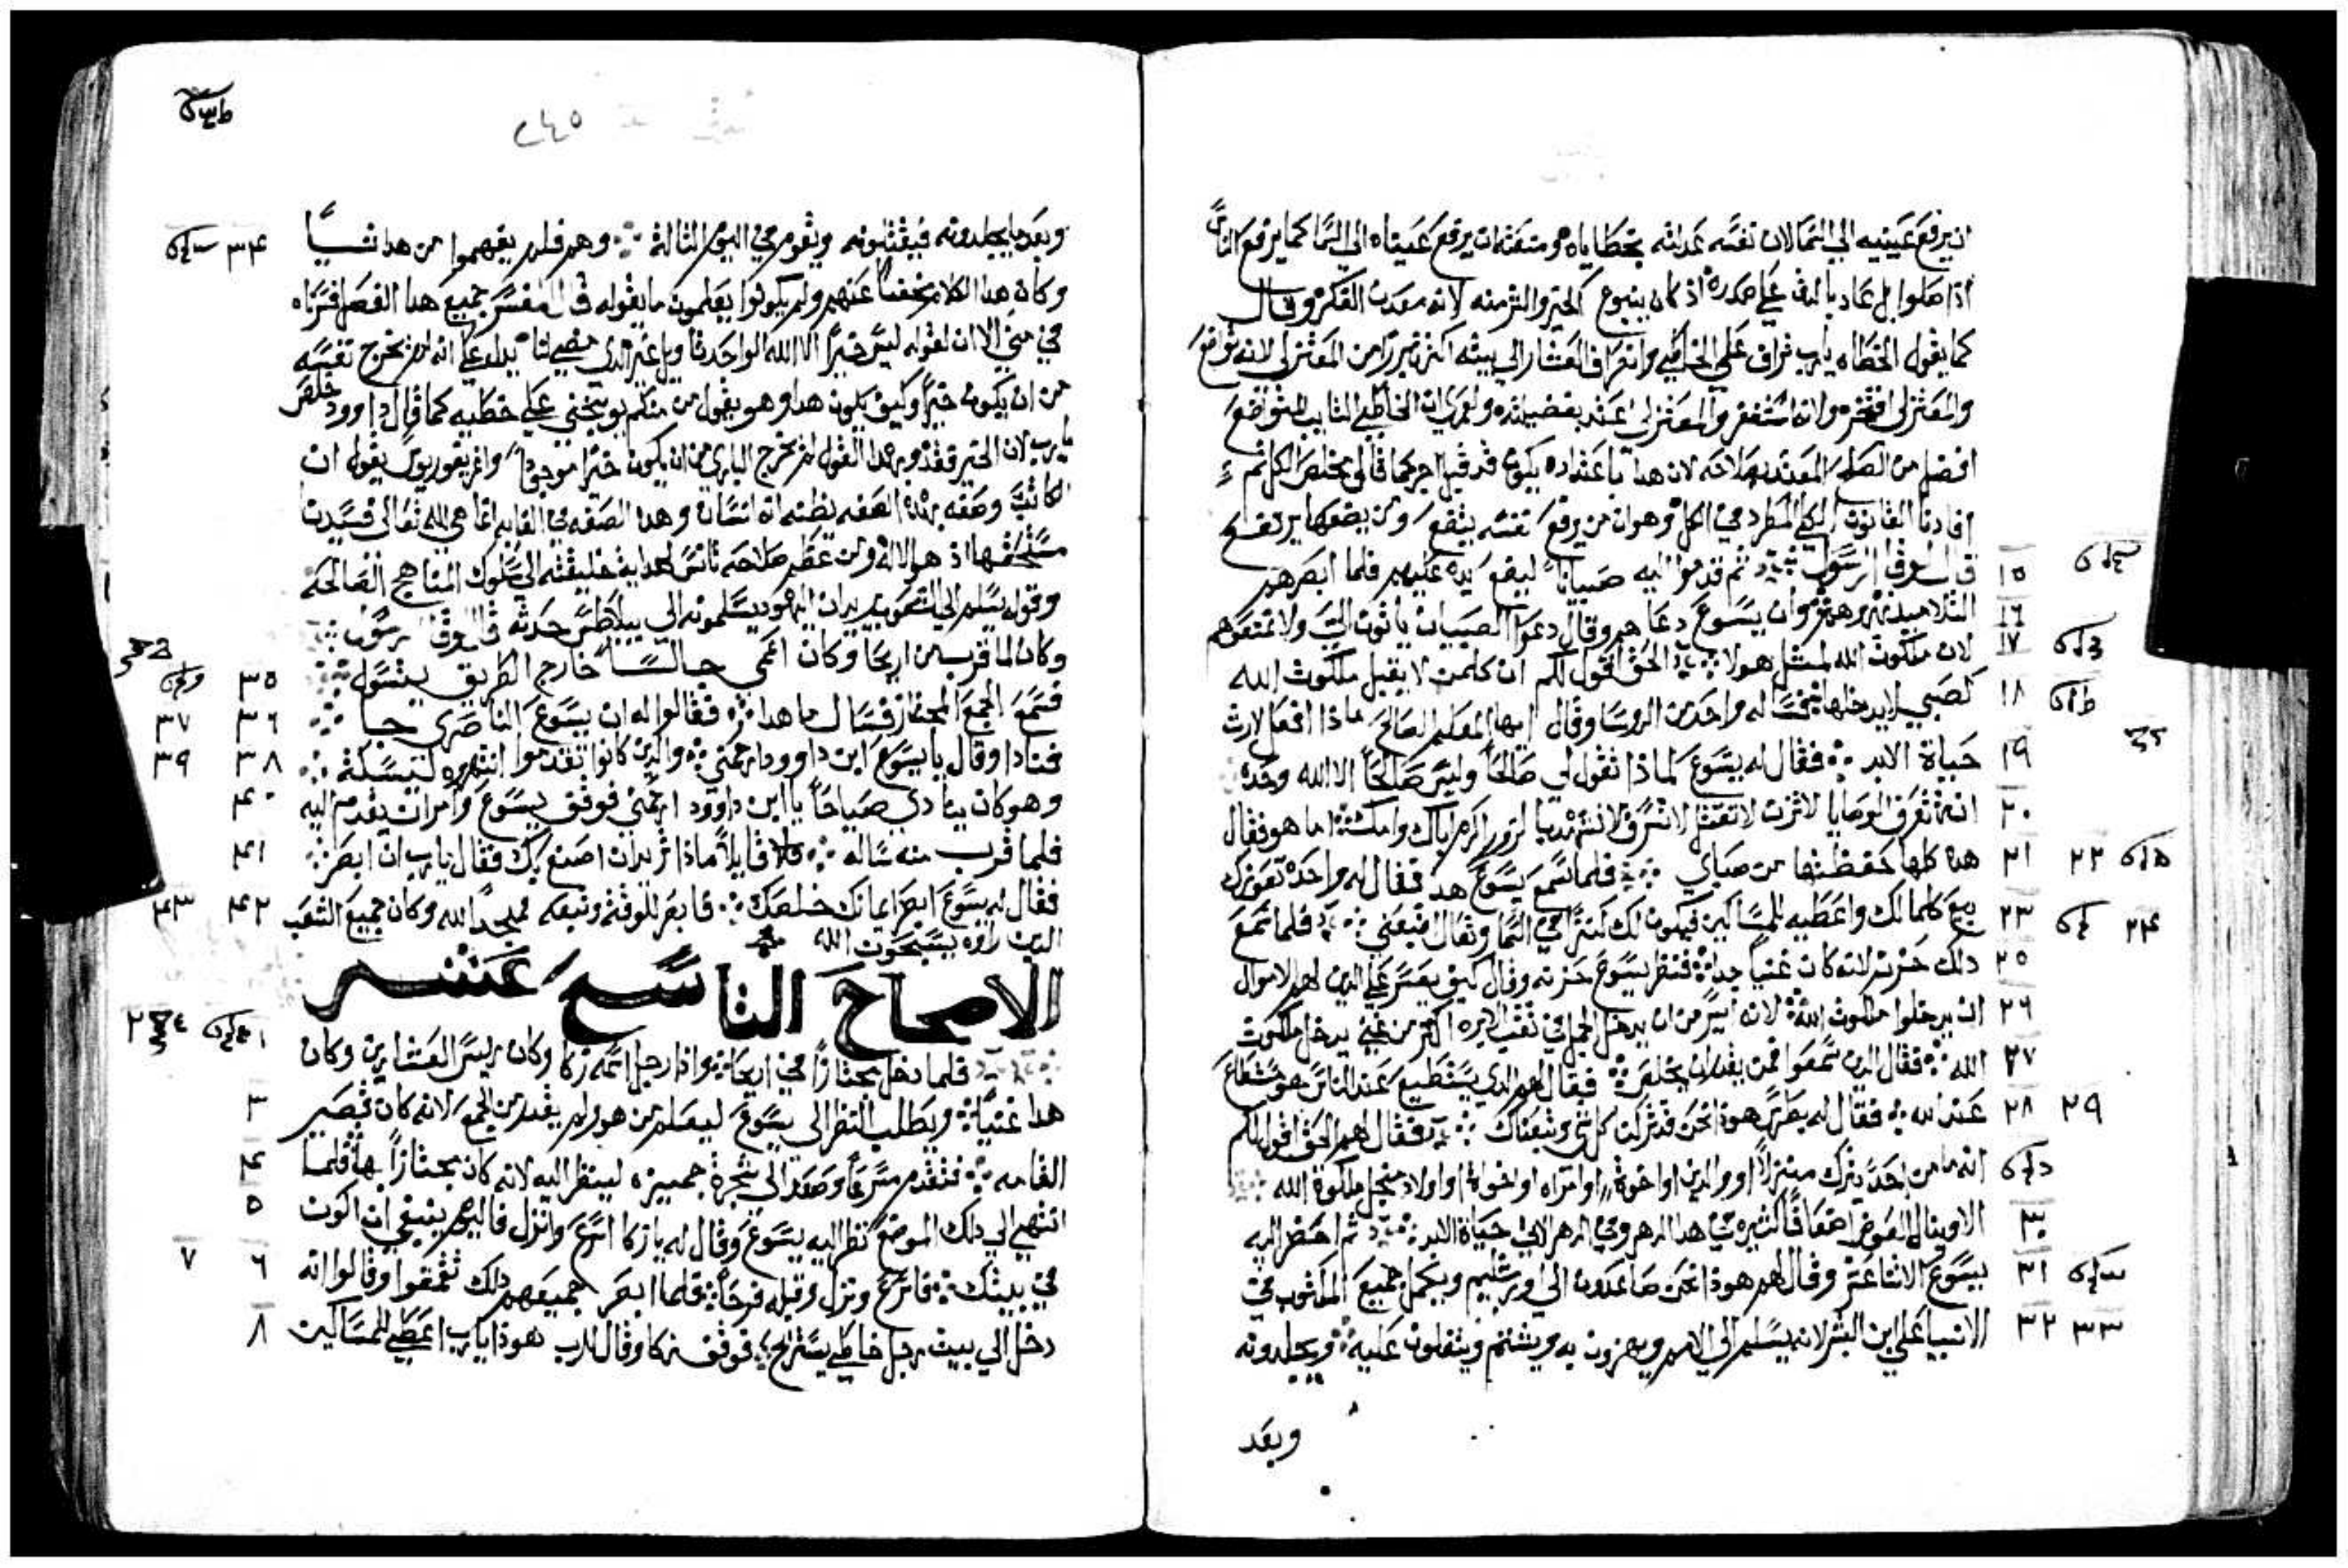 ان يرفع عينيه الي السما لان نفسه عدلته بخطاياه ومنعته ان يرفع عيناه الي السما كما يرفع الناس
اذا صلوا بل عاد بالدق علي صدره اذ كان ينبوع الخير والشر منه لانه معدن الفكر وقال
كما يقول الخطاه يارب تراف علي الخاطي وانصرف العشار الي بيته اكثر تبررا من المعتزلي لانه تواضع
والمعتزلي افتخر ولانه استغفر والمعتزلي اعتد بفضيلته ولعمري ان الخاطي التايب المتواضع
افضل من الصالح المعتد بصلاحه لان هذا باعتداده يكون قد قبل اجره كما قال مخلص الكل ثم
افادنا القانون الكلي المطرد في الكل وهو ان من يرفع نفسه يتضع ومن يضعها يرتفع
قال لوقا الرسول ثم قدموا اليه صبيانا ليضع يده عليهم فلما ابصرهم
١٥
التلاميذ نهروهم وان يسوع دعاهم وقال دعوا الصبيان ياتون الي ولا تمنعوهم
١٦
لان ملكوت الله لمثل هولا الحق اقول لكم ان كلمن لا يقبل ملكوت الله
١٧
كصبي لا يدخلها فساله واحد من الروسا وقال ايها المعلم الصالح ماذا افعل لارث
١٨
حياة الابد فقال له يسوع لماذا تقول لي صالحا وليس صالحا الا الله وحده
١٩
انت تعرف الوصايا لا تزن لا تقتل لا تسرق لا تشهد بالزور اكرم اباك وامك اما هو فقال
٢٠
هذه كلها حفظتها من صباي فلما سمع يسوع هذا فقال له واحدة تعوزك
٢١ ٢٢
بيع كلمالك واعطيه للمساكين فيكون لك كنزا في السما وتعال اتبعني فلما سمع
٢٣ ٢٤
ذلك حزن لانه كان غنيا جدا فنظر يسوع حزنه وقال كيف يعسر علي الذين لهم الاموال
٢٥
ان يدخلوا ملكوت الله لانه ايسر من ان يدخل الجمل في ثقب الابره اكثر من غني يدخل ملكوت
٢٦
الله فقال الذين سمعوا فمن يقدر ان يخلص فقال لهم الذي يستطيع عند الناس هو مستطاع
٢٧
عند الله فقال له بطرس هوذا نحن قد تركنا كل شي وتبعناك فقال لهم الحق اقول لكم
٢٨ ٢٩
انه ما من احد يترك منزلا او والدين او اخوة او امراه او اخوة او اولاد من اجل ملكوة الله
الا وينال العوض اضعافا كثيره في هذا الدهر وفي الدهر الاتي حياة الابد ثم احضر اليه
٣٠
يسوع الاثنا عشر وقال لهم هوذا نحن صاعدون الي اورشليم ويكمل جميع المكتوب في
٣١
الانبيا علي ابن البشر لانه يسلم الي الامم ويهزون به ويشتم ويتفلون عليه ويجلدونه
٣٢ ٣٣
وبعد
٢٤٥
وبعد ما يجلدونه فيقتلونه ويقوم في اليوم الثالث وهم فلم يفهموا من هذا شيا
٣٤
وكان هذا الكلام مخفيا عنهم ولم يكونوا يعلمون ما يقوله قال المفسر جميع هذا الفصل فسرناه
في متي الا ان لقوله ليس خيرا الا الله الواحد
من ان يكون خيرا وكيف يكون هذا وهو يقول من منكم يوبخني علي خطيه كما قال داوود خلص
يارب لان الخير فقد وبهذا القول لم يخرج الباري من ان يكون خيرا موجودا يقول ان
الكاتب وصفه بهذه الصفه بظنه انه انسان وهذه الصفه في الغايه انما هي لله تعالي فسيدنا
مستحقها اذ هو الاله ومن عظم صلاحه تانس لهداية خليقته الي سلوك المناهج الصالحه
وقوله يسلم الي الشعوب يريد ان اليهود يسلمونه الي بيلاطس وحده قال لوقا الرسول
وكان لما قرب من اريحا وكان اعمي جالسا خارج الطريق يتسول
٣٥
فسمع الجمع المجتاز فسال ما هذا فقالوا له ان يسوع الناصري جا
٣٦ ٣٧
فنادا وقال يا يسوع ابن داوود ارحمني والذين كانوا تقدموا انتهروه ليسكت
٣٨ ٣٩
وهو كان ينادي صياحا يا ابن داوود ارحمني فوقف يسوع وامر ان يقدم اليه
٤٠
فلما قرب منه ساله قايلا ماذا تريد ان اصنع بك فقال يارب ان ابصر
٤١
فقال له يسوع ابصر ايمانك خلصك فابصر للوقت وتبعه ممجدا لله وكان جميع الشعب
٤٢ ٤٣
الذين راوه يسبحون الله
الاصحاح التاسع عشر
فلما دخل مجتازا في اريحا واذا رجل اسمه زكا وكان رييس العشارين وكان
١ ٢
هذا غنيا ويطلب النظر الي يسوع ليعلم من هو ولم يقدر من الجمع لانه كان قصير
٣
القامه فتقدم مسرعا وصعد الي شجرة جميزه لينظر اليه لانه كان مجتازا بها فلما
٤
انتهي الي ذلك الموضع نظر اليه يسوع وقال له يا زكا اسرع وانزل فاليوم ينبغي ان اكون
٥
في بيتك فاسرع ونزل وقبله فرحا فلما ابصر جميعهم ذلك تقمقموا وقالوا انه
٦ ٧
دخل الي بيت رجل خاطي يستريح فوقف زكا وقال للرب هوذا يارب اعطي للمساكين
٨